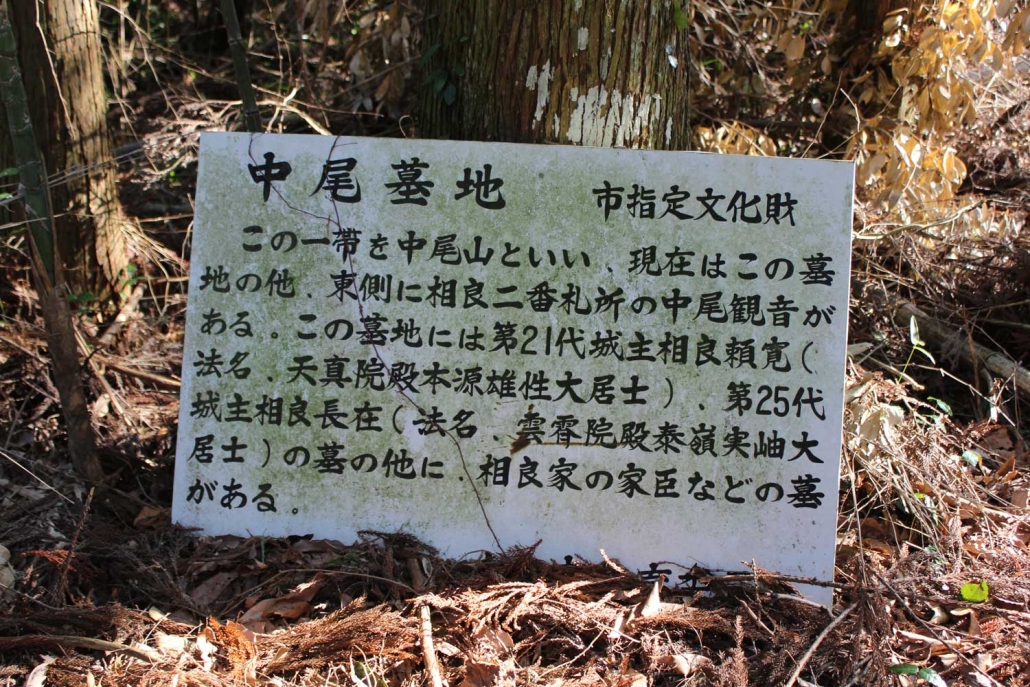 中尾墓地　市指定文化財
この一帯を中尾山といい、現在はこの墓
地の他、東側に相良二番札所の中尾観音が
ある。この墓地には第21代城主相良頼寛(
法名、天真院殿本源雄性大居士)、第25代
城主相良長在(法名、雲霄院殿泰嶺実岫大
居士)の墓の他に、相良家の家臣などの墓
がある。